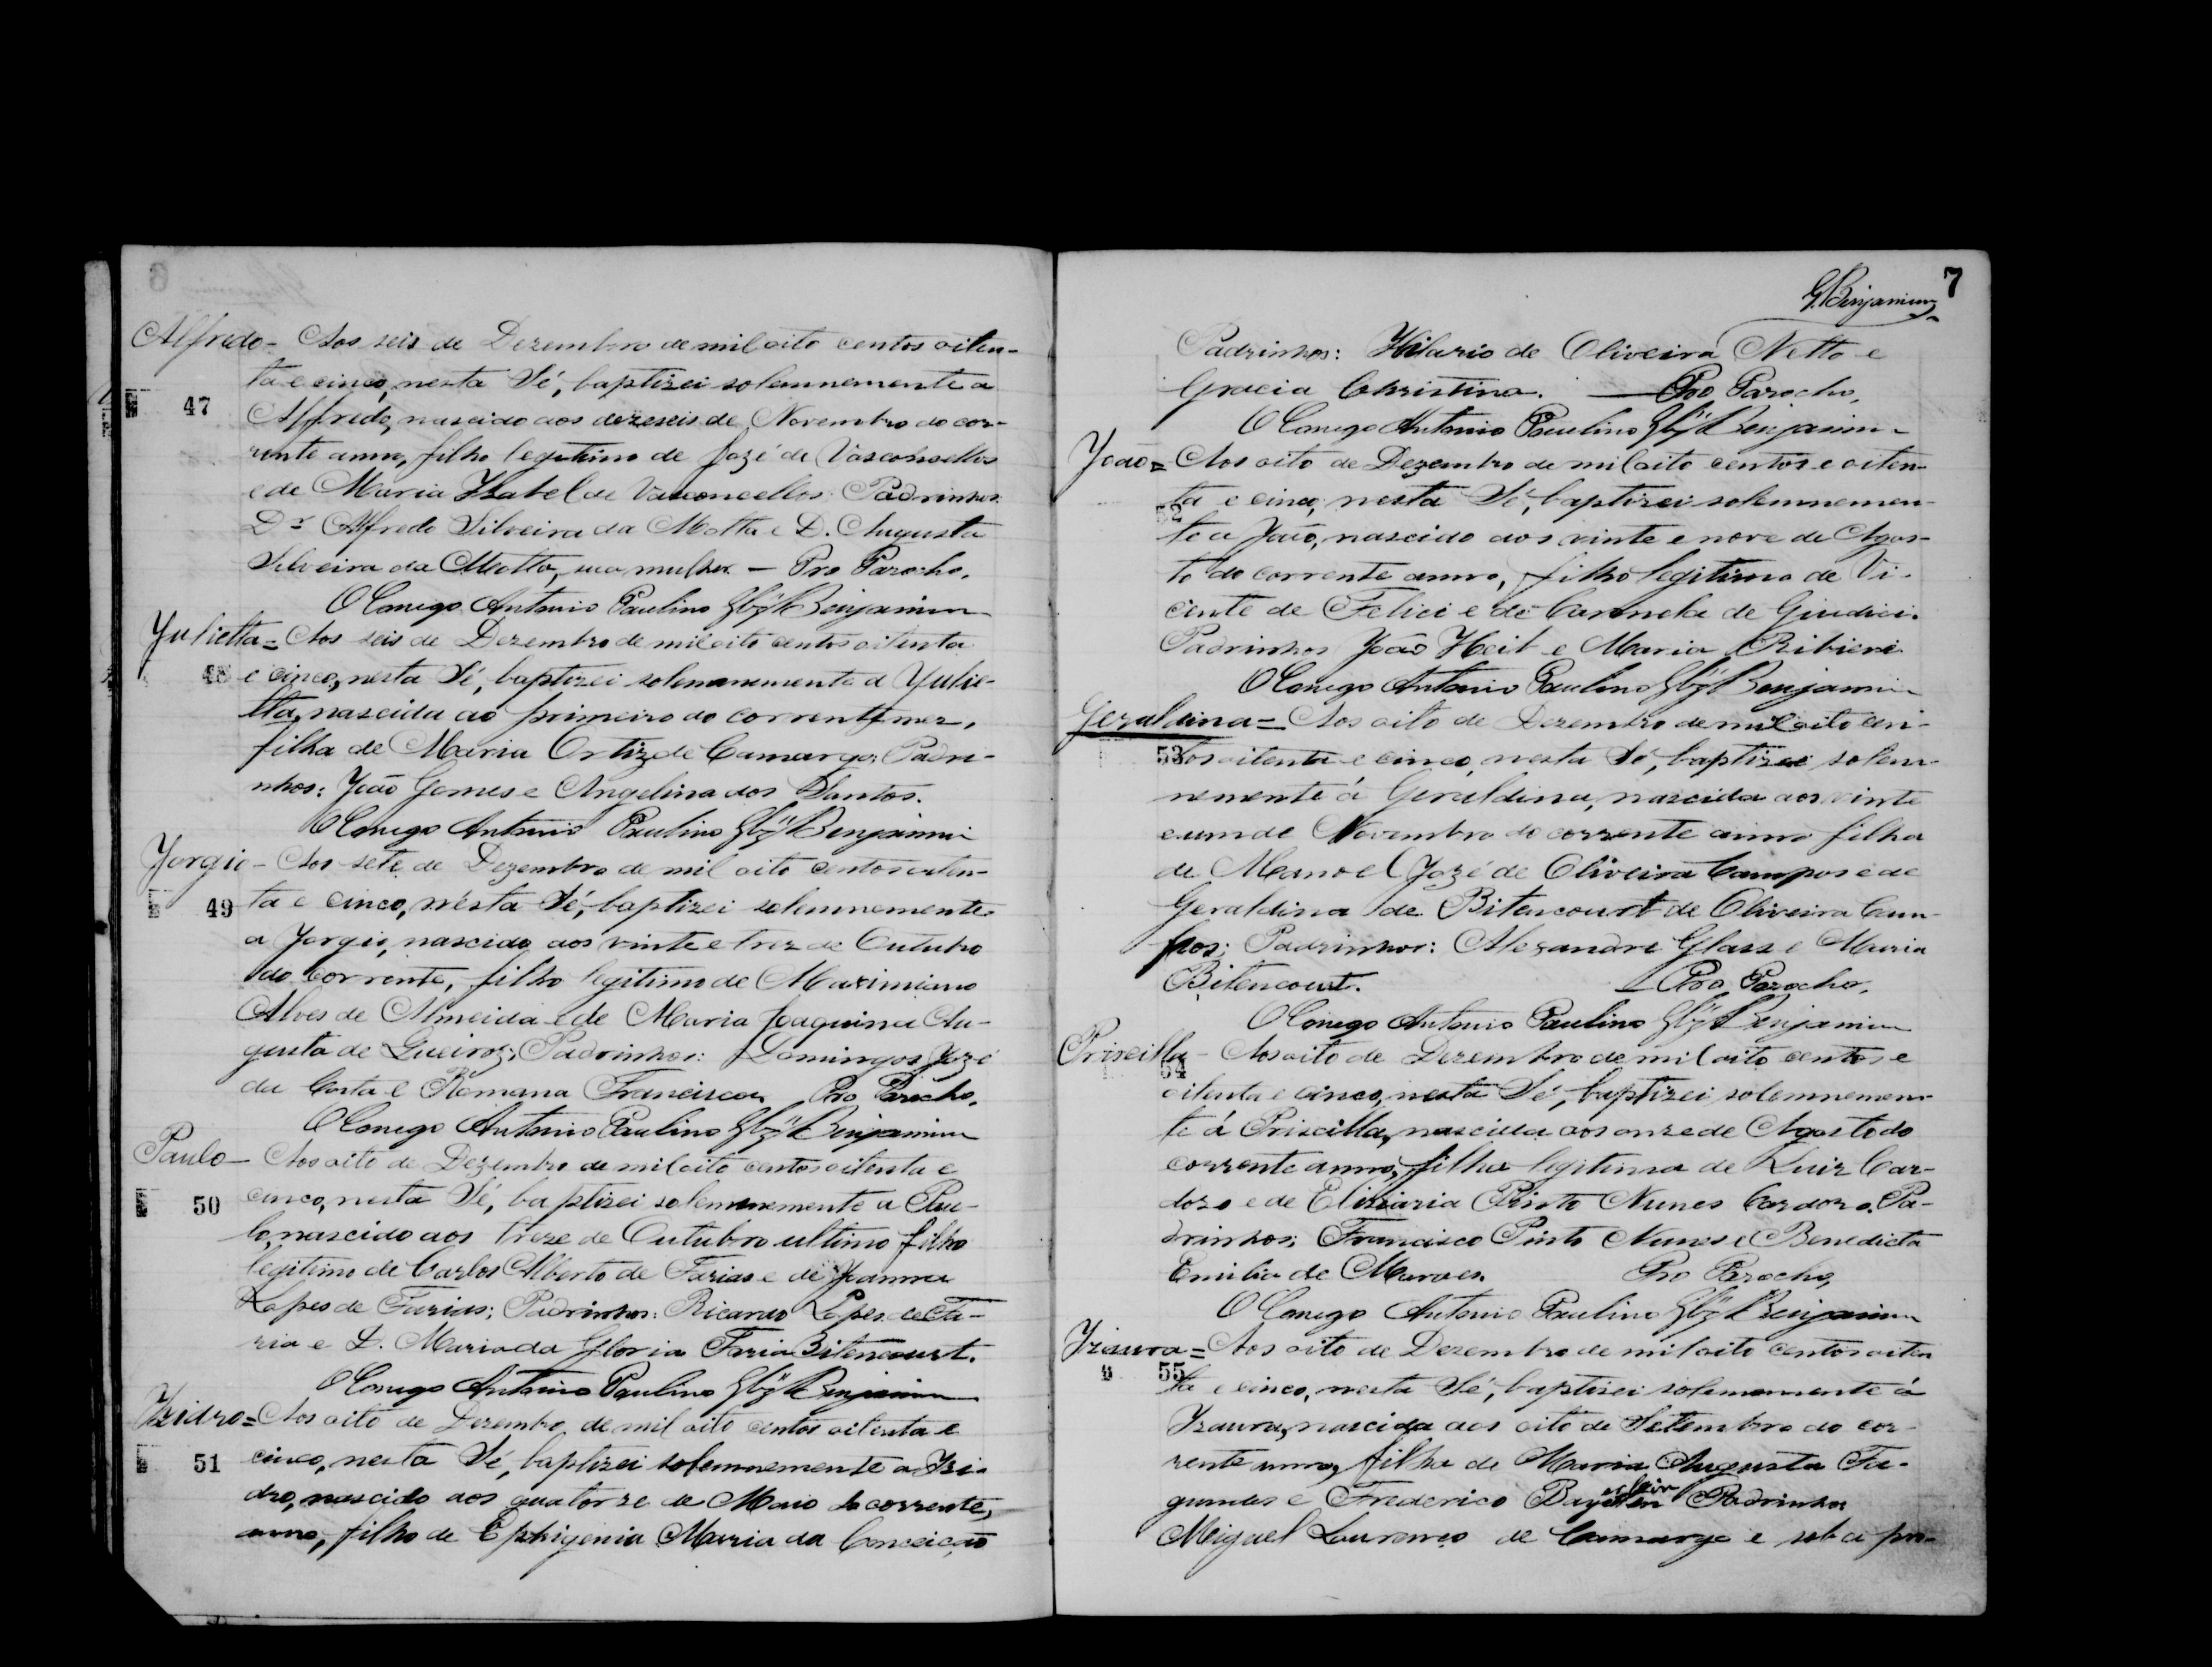 Alfredo - Aos seis de Dezembro de mil oito centos oiten-
47 ta e cinco, nesta Sé, baptizei solemnemente a
Alfredo, nascido aos dezeseis de Novembro do cor-
rente anno, filho legitimo de José de Vasconsellos
e de Maria Izabel de Vasconcellos. Padrinhos:
Dr Alfredo Silveira da Motta e D. Augusta
Silveira da Motta, sua mulher - Pro Parocho,
O Conego Antonio Paulino Benjamin
Yulietta = Aos seis de Dezembro de mil oito centos oitenta
48 e cinco, nesta Sé, baptizei solemnemente a Yulie-
tta, nascida ao primeiro do corrente mez,
filha de Maria Ortiz de Camargo; Padri-
nhos: João Gomes e Angelina dos Santos.
O Conego Antonio Paulino Benjamin
Jorgio - Aos sete de Dezembro de mil oito centos oiten-
49 ta e cinco, nésta Sé, baptizei solemnemente
a Jorgio, nascido aos vinte e trez de Outubro
do corrente, filho legitimo de Maximiano
Alves de Almeida e de Maria Joaquina Au-
gusta de Queiroz; Padrinhos: Domingos José
da Costa e Romana Francisca. Pro Parocho,
O Conego Antonio Paulino Benjamin
Paulo - Aos oito de Dezembro de mil oito centos oitenta e
50 cinco, nesta Sé, baptizei solemnemente a Pau-
lo, nascido aos treze de Outubro ultimo filho
legitimo de Carlos Alberto de Farias e de Joanna
Lopes de Farias; Padrinhos: Ricardo Lopes de Fa-
ria e D. Maria da Gloria Faria Bitencourt.
O Conego Antonio Paulino Benjamin
Izidro = Aos oito de Dezembro de mil oito centos oitenta e
51 cinco, nesta Sé, baptizei solemnemente a Izi-
dro, nascido aos quatorze de Maio do corrente
anno, filho de Ephigenia Maria da Conceição
7
G. Benjamin
Padrinhos: Hilario de Oliveira Netto e
Gracia Christina. — Pro Parocho,
O Conego Antonio Paulino Benjamin
João = Aos oito de Dezembro de mil oito centos e oiten-
52 ta e cinco, nesta Sé, baptizei solemnemen-
te a João, nascido aos vinte e nove de Agos-
to do corrente anno, filho legitimo de Vi-
cente de Felici e de Carmela de Giudici.
Padrinhos João Heit e Maria Ribieri
O Conego Antonio Paulino Benjamin
Geraldina = Aos oito de Dezembro de mil oito cen-
53 tos oitenta e cinco, nesta Sé, baptizei solem-
nemente á Geraldina, nascida aos vinte
e um de Novembro do corrente anno filha
de Manoel José de Oliveira Campos e de
Geraldina de Bitencourt de Oliveira Cam-
pos; Padrinhos: Alexandre Glass e Maria
Bitencourt. — Pro Parocho,
O Conego Antonio Paulino Benjamin
Priscilla - Aos oito de Dezembro de mil oito centos e
54
oitenta e cinco, nesta Sé, baptizei solemnemen-
te á Priscilla, nascida aos onze de Agosto do
corrente anno, filha legitima de Luiz Car-
dozo e de Eliziaria Pinto Nunes Cardozo. Pa-
drinhos: Francisco Pinto Nunes e Benedicta
Emilia de Moraes. Pro Parocho,
O Conego Antonio Paulino Benjamin
Izaura = Aos oito de Dezembro de mil oito centos oiten
55 ta e cinco, nesta Sé, baptizei solemnemente á
Izaura, nascida aos oito de Setembro do cor-
rente anno, filha de Maria Augusta Fa-
gundes e Frederico Padrinhos
Miguel Lourenço de Camargo e sob a pro-